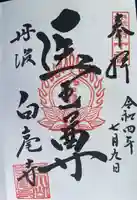 奉拝
令和四年
七月九日
医王尊
丹波
白毫寺